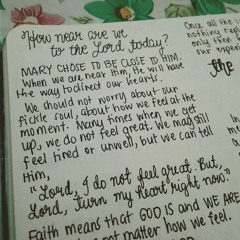 How near are we
to the Lord today?
MARY CHOSE TO BE CLOSE TO HIM.
When we are near Him, He will have
the way to direct our hearts.
We should not worry about our
fickle soul, about how we feel at the
moment. Many times when we get
up, we do not feel great. We may still
feel tired or unwell, but we can tell
Him,
"Lord, I do not feel great. But,
Lord, turn my heart right now."
Faith means that GOD IS and WE ARE
not matter how we feel.
Once all the
nothing
only then
our
the